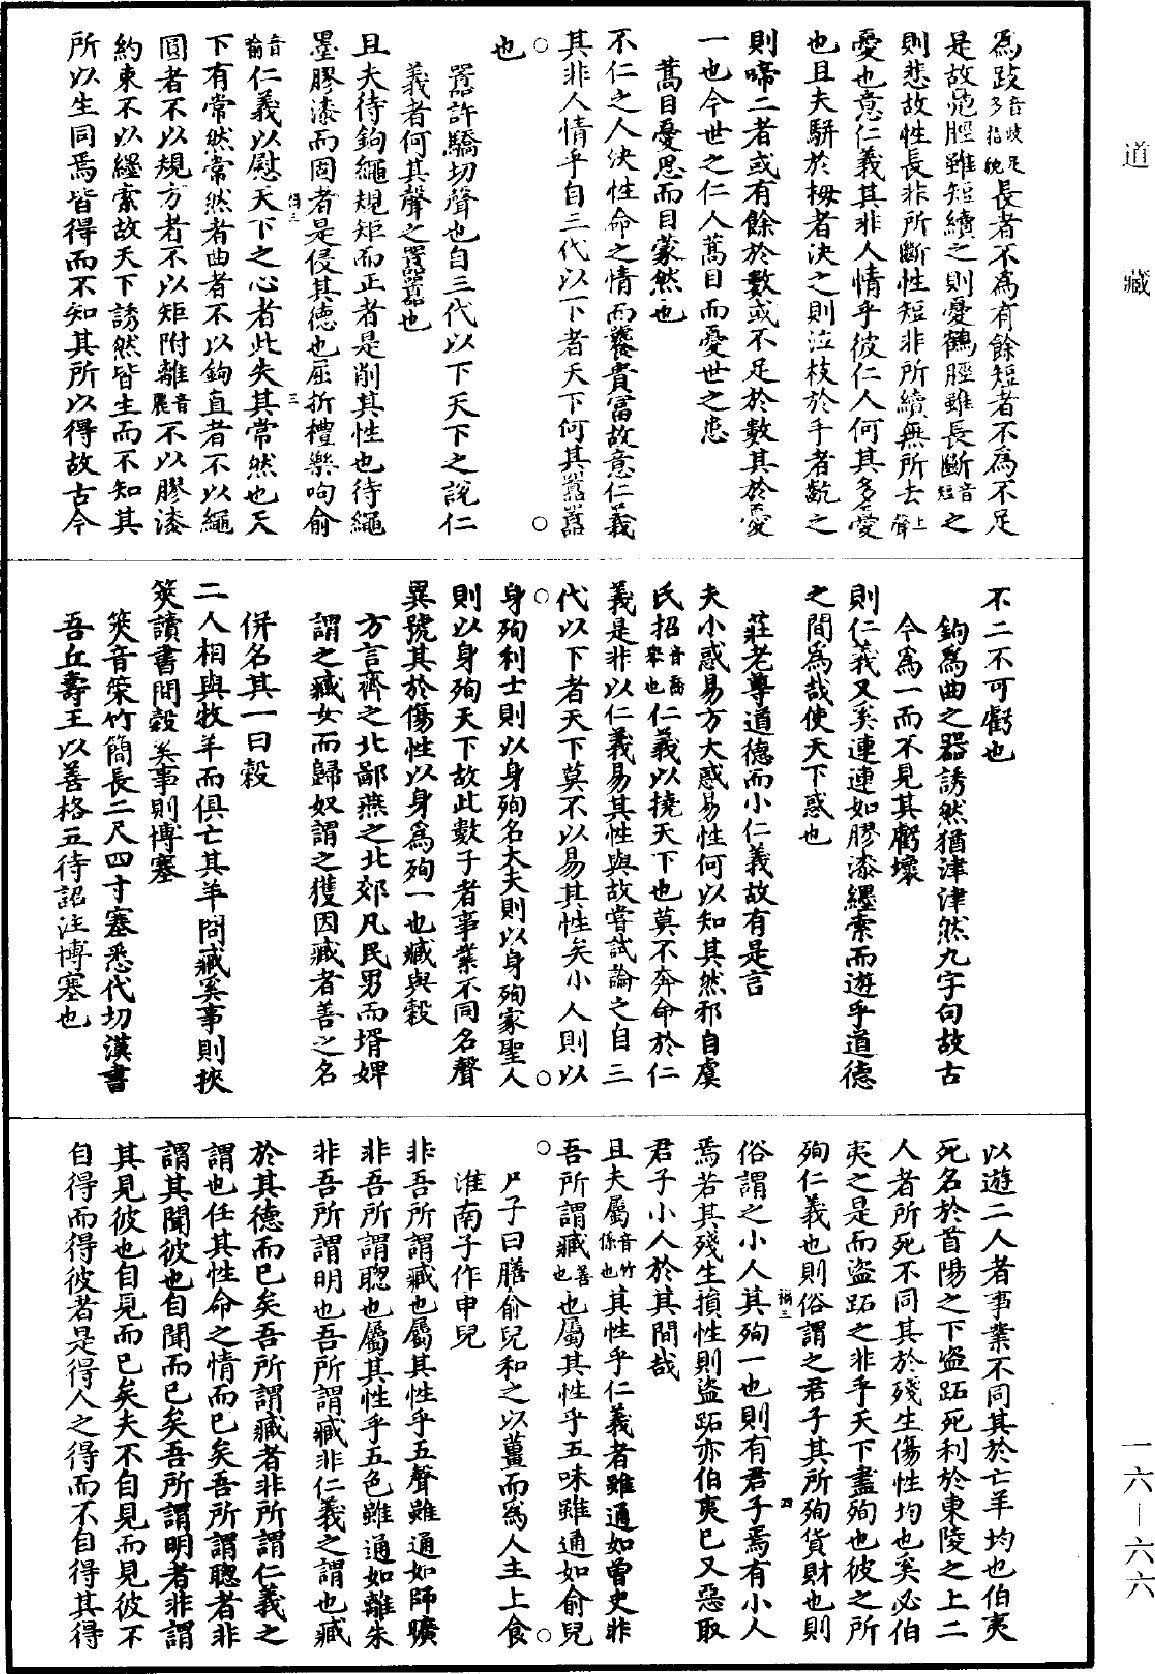 道藏
為跂音岐足多指貌長者不為有餘短者不為不足
是故鳧脛雖短續之則憂鶴脛雖長斷音短之
則悲故性長非所斷性短非所續無所去上聲
憂也意仁義其非人情乎彼仁人何其多憂
也且夫駢於拇者決之則泣枝於手者齕之
則啼二者或有餘於數或不足於數其於憂
一也今世之仁人蒿目而憂世之患
蒿目憂思而目蒙然也
不仁之人決性命之情而饕貴富故意仁義
其非人情乎自三代以下者天下何其囂囂
○○
也
囂許驕切聲也自三代以下天下之說仁
義者何其聲之囂囂也
且夫待鉤繩規矩而正者是削其性也待繩
墨膠漆而固者是侵其德也屈折禮樂呴俞
音喻仁義以慰天下之心者此失其常然也天
下有常然常然者曲者不以鉤直者不以繩
圓者不以規方者不以矩附離音麗不以膠漆
約束不以纆索故天下誘然皆生而不知其
所以生同焉皆得而不知其所以得故古今
不二不可虧也
鉤為曲之器誘然猶津津然九字句故古
今為一而不見其虧壞
則仁義又奚連連如膠漆纆索而遊乎道德
之間為哉使天下惑也
莊老尊道德而小仁義故有是言
夫小惑易方大惑易性何以知其然邪自虞
氏招音喬舉也仁義以撓天下也莫不奔命於仁
義是非以仁義易其性與故嘗試論之自三
代以下者天下莫不以易其性矣小人則以
○○
身殉利士則以身殉名大夫則以身殉家聖人
則以身殉天下故此數子者事業不同名聲
異號其於傷性以身為殉一也臧與穀
方言齊之北鄙燕之北郊凡民男而壻婢
謂之臧女而歸奴謂之獲因臧者善之名
併名其一曰穀
二人相與牧羊而俱亡其羊問臧奚事則挾
筴讀書問穀奚事則博塞
筴音策竹簡長二尺四寸塞悉代切漢書
吾丘壽王以善格五待詔注博塞也
以遊二人者事業不同其於亡羊均也伯夷
死名於首陽之下盜跖死利於東陵之上二
人者所死不同其於殘生傷性均也奚必伯
夷之是而盜跖之非乎天下盡殉也彼之所
殉仁義也則俗謂之君子其所殉貨財也則
俗謂之小人其殉一也則有君子焉有小人
焉若其殘生損性則盜跖亦伯夷已又惡取
君子小人於其間哉
且夫屬音竹係也其性乎仁義者雖通如曾史非
吾所謂臧善也也屬其性乎五味雖通如俞兒
○○
尸子曰膳俞兒和之以薑而為人主上食
淮南子作申兒
非吾所謂臧也屬其性乎五聲雖通如師曠
非吾所謂聰也屬其性乎五色雖通如離朱
非吾所謂明也吾所謂臧非仁義之謂也臧
於其德而已矣吾所謂臧者非所謂仁義之
謂也任其性命之情而已矣吾所謂聰者非
謂其聞彼也自聞而已矣吾所謂明者非謂
其見彼也自見而已矣夫不自見而見彼不
自得而得彼者是得人之得而不自得其得
一六—六六